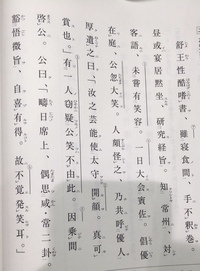 舒王性酷嗜書、雖寝食間、手不釈巻。
昼或宴居黙坐、研究経旨。知常州、対
客語、未嘗有笑容。一日大会賓佐。倡優
在庭、公忽大笑。人頗怪之、乃共呼優人
厚遺之曰、「汝之芸能使太守開顔。真可
賞也。」有一人竊疑公笑不由此。因乗間
啓公。公曰、「疇日席上、偶思咸・常二卦、
豁悟微旨、自喜有得。故不覚発笑耳。」